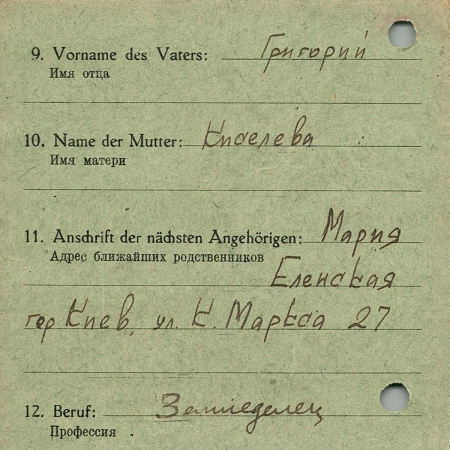 9. Vorname des Vaters: Григорий
Имя отца
10. Name der Mutter: Киселева
Имя матери
11. Anschrift der nächsten Angehörigen: Мария
Адрес ближайших родственников Еленская
гор Киев, ул. К. Маркса 27
12. Beruf: Земледелец
Профессия